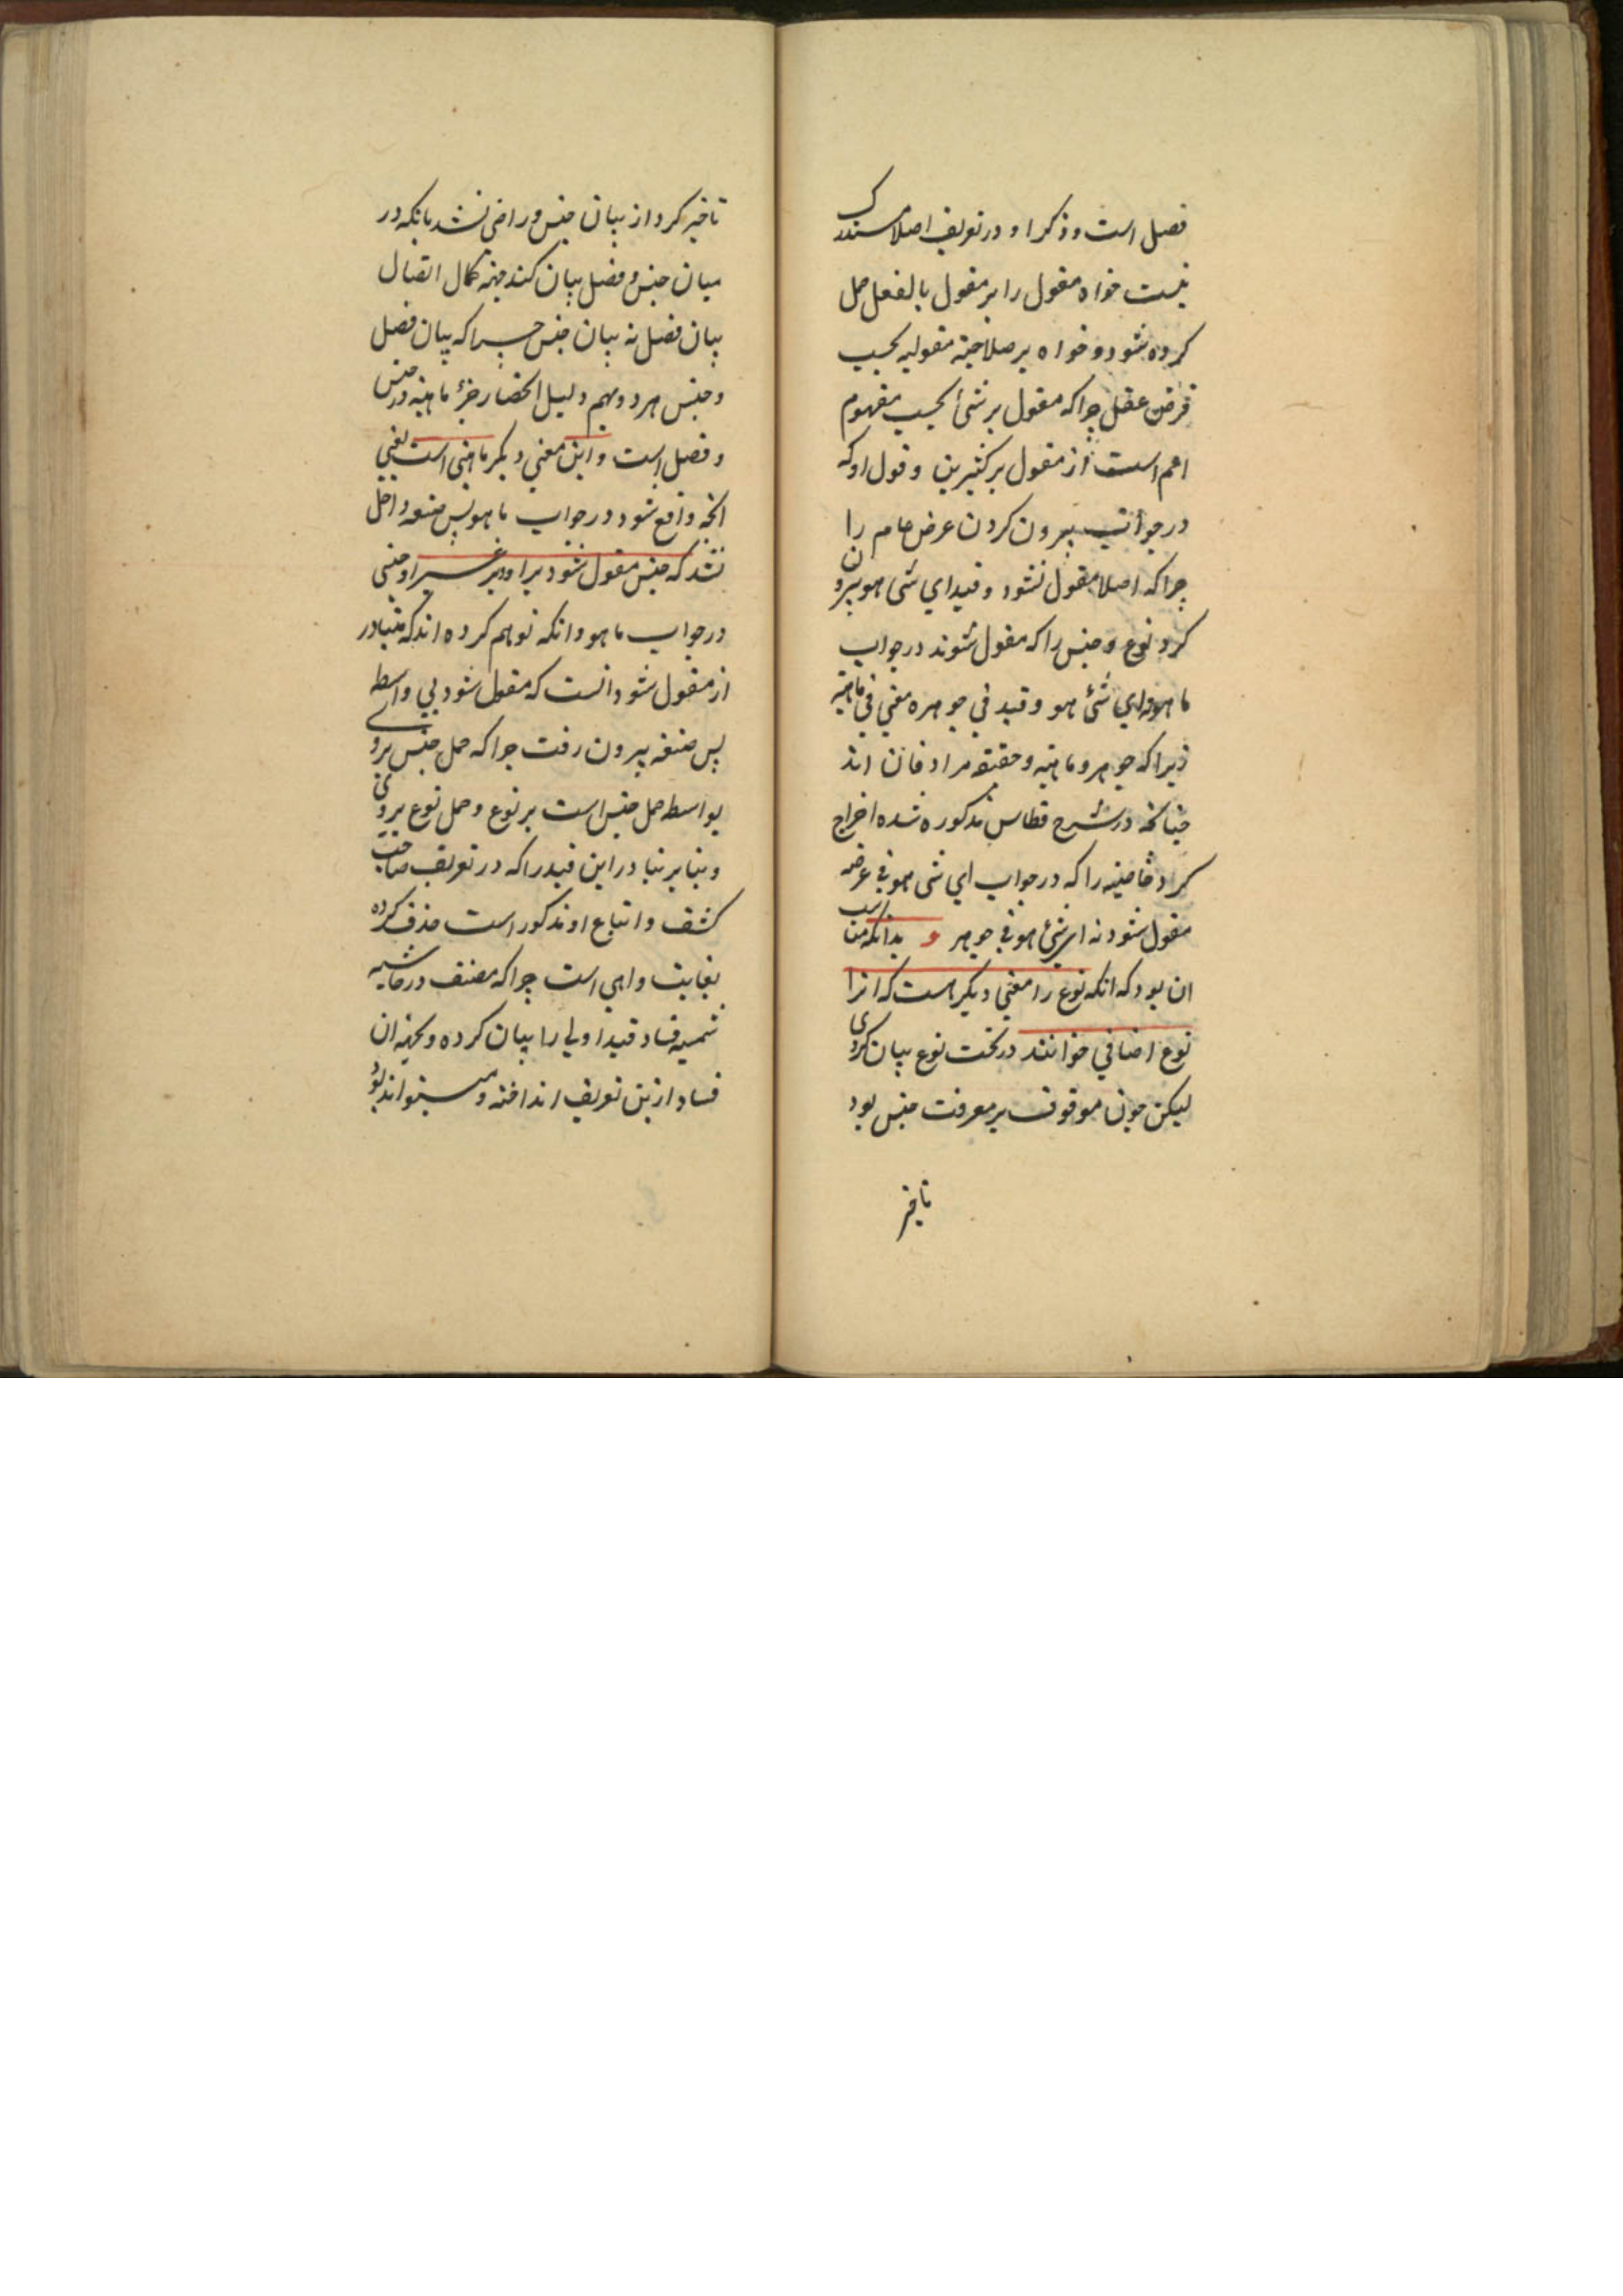 فصل است و ذکر او در تعریف اصلا مستدرک
نیست خواه مقول را بر مقول بالفعل حمل
کرده شود و خواه بر صلاحیة مقولیه بحسب
فرض عقل چرا که مقول بر شئ بحسب مفهوم
اعم است از مقول بر کثیرین و قول او که
در جواب بیرون کردن عرض عام را
چرا که اصلا مقول نشود و قید ای شی هو بیرون
کرد نوع و جنس را که مقول شوند در جواب
ما هو نه ای شئ هو و قید فی جوهره معنی فی ماهیة
زیرا که جوهر و ماهیة و حقیقة مرادفان اند
چنانکه در شرح قسطاس مذکوره شده اخراج
کرد خاصیه را که در جواب ای شی هو فی عرضه
مقول شود نه ای شئ هو فی جوهر و بدانکه مناسب
ان بود که انکه نوع را معنی دیکر است که انرا
نوع اضافی خوانند در تحت نوع بیان کردی
لیکن چون موقوف بر معرفت جنس بود
تاخیر
تاخیر کرد از بیان جنس و راضی نشد بانکه در
میان جنس و فصل بیان کند جهة کمال اتصال
بیان فصل نه بیان جنس چرا که بیان فصل
و جنس هر دو بهم دلیل انحصار جزء ماهیة در جنس
و فصل است و این معنی دیکر ماهیتی است یعنی
انچه واقع شود در جواب ما هو پس صنف داخل
نشد که جنس مقول شود بر او و بر غیر او جنسی
در جواب ما هو و انکه توهم کرده اند که متبادر
از مقول شود انست که مقول شود بی واسطه
پس صنف بیرون رفت چرا که حمل جنس بروی
بواسطه حمل جنس است بر نوع و حمل نوع بروی
و بنا بر تبادر این قید را که در تعریف صاحب
کشف و اتباع او مذکور است حذف کرده
بغایت واهی است چرا که مصنف در حاشیه
شمسیه فساد قید اولی را بیان کرده و بجهة ان
فساد ازین تعریف انداخته و میتواند بود